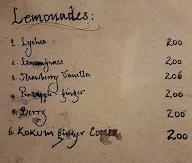 Lemonades:
1. Lychee 200
2. Lemongrass 200
3. Strawberry Vanilla 200
4. Pineapple ginger 200
5. Berry 200
6. KOKUM ginger 200